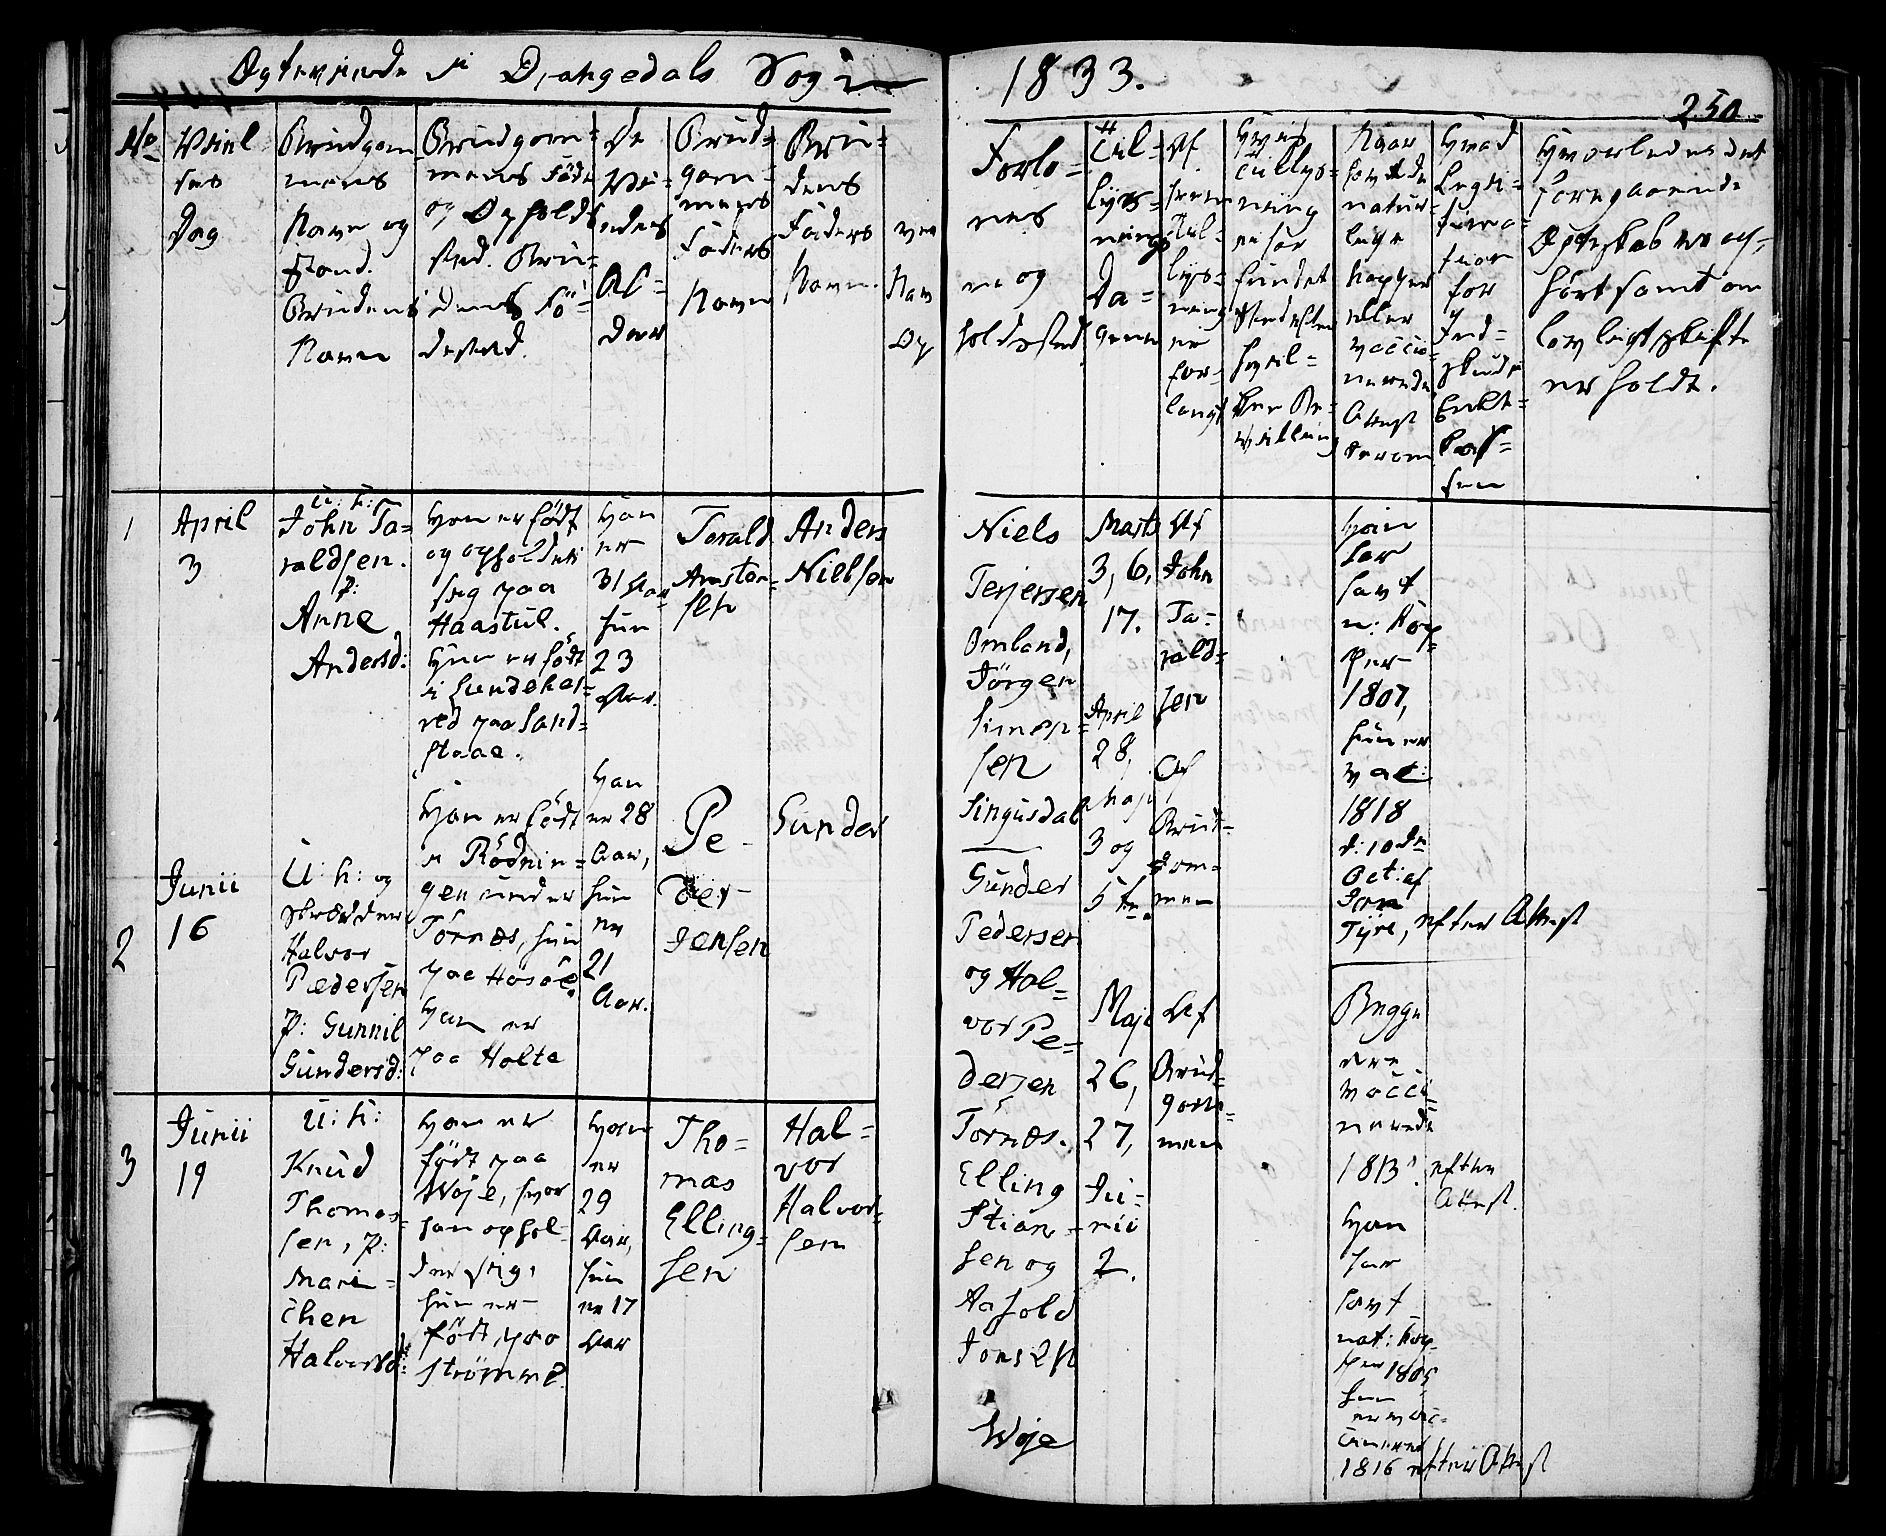 Ægteviede i Drangedals Sogn
1833.
250.
No
Viel
ses
Dag
Brudgom
mens
Navn og
Stand.
Brudens
Navn
Brudgom=
mens Føde
og Opholds
sted. Bru=
dens Fö=
dested.
De
Vi=
edes
Al=
der
Brud=
gom=
mens
Faders
Navn
Bru=
dens
Faders
Navn.
Navn
Op
Forlo=
ver
ne og
holdssted
Til=
lys=
nings
Da=
gene
Af
hvem
Lys=
ning
er
for=
langt
Hvis
tillys=
ning
er for
fundet
Sted efter
Naar
havde
natur=
lige
Kopper
eller
vacci=
nerede
Attest
derom
Hvad
Legiti=
for
Hvorledes det
foregaaende
Ægteskab er op=
hört samt om
lovligt skifte
er holdt.
1
April
3
U: K:
John Ta=
raldsen.
p:
Anne
Andersd:
Han er födt
og opholder
sig paa
Haastul.
Hun er födt
i Sundeher=
red paa Sand=
staae.
Han
er
31 Aar
hun
23
Aar.
Tarald
Arnsten=
sen
Anders
Nielsen
Niels
Terjersen
Omland,
Jörgen
Simon=
sen
Singusdal
Marts
3, 6,
17.
Af
John
Ta=
rald=
sen
Han
har
havt
n: Kop=
per
1807,
hun er
vac:
1818
d: 10de
Oct: af
Jörn
Tyre, efter Attest
2
Junii
16
U: K: og
Skrædder
Halvor
Pedersen
p: Gunnil
Gundersd:
Han er födt
i Rödnin=
gen under
Törnes, hun
paa Hosöe.
Han er
paa Holte
Han
er 28
Aar,
hun
er
21
Aar.
Pe-
der
Jensen
Gunder
Gunder
Pedersen
og Hal=
vor Pe=
dersen
Törnes.
April
28,
Maji
3 og
5te.
Af
Brud=
gom=
men
Begge
ere
vacci=
nerede
1813. efter
Attest.
3
Junii
19
U: K:
Knud
Thomas=
sen, p:
Mari=
chen
Halvorsd:
Han er
födt paa
Woje, hvor
han ophol=
der sig,
hun er
födt paa
Strömme.
Han
er
29
Aar,
hun
er 17
Aar
Tho=
mas
Elling=
sen
Hal=
vor
Halvor=
sen
Elling
Stian=
sen og
Aasold
Jonsen
Woje
Maji
26,
27,
Ju=
nii
2.
Af
Brud=
gom=
men
Han
har
havt
nat: Kop=
per 1805
hun
er vac=
cineret
1816 efter Attest